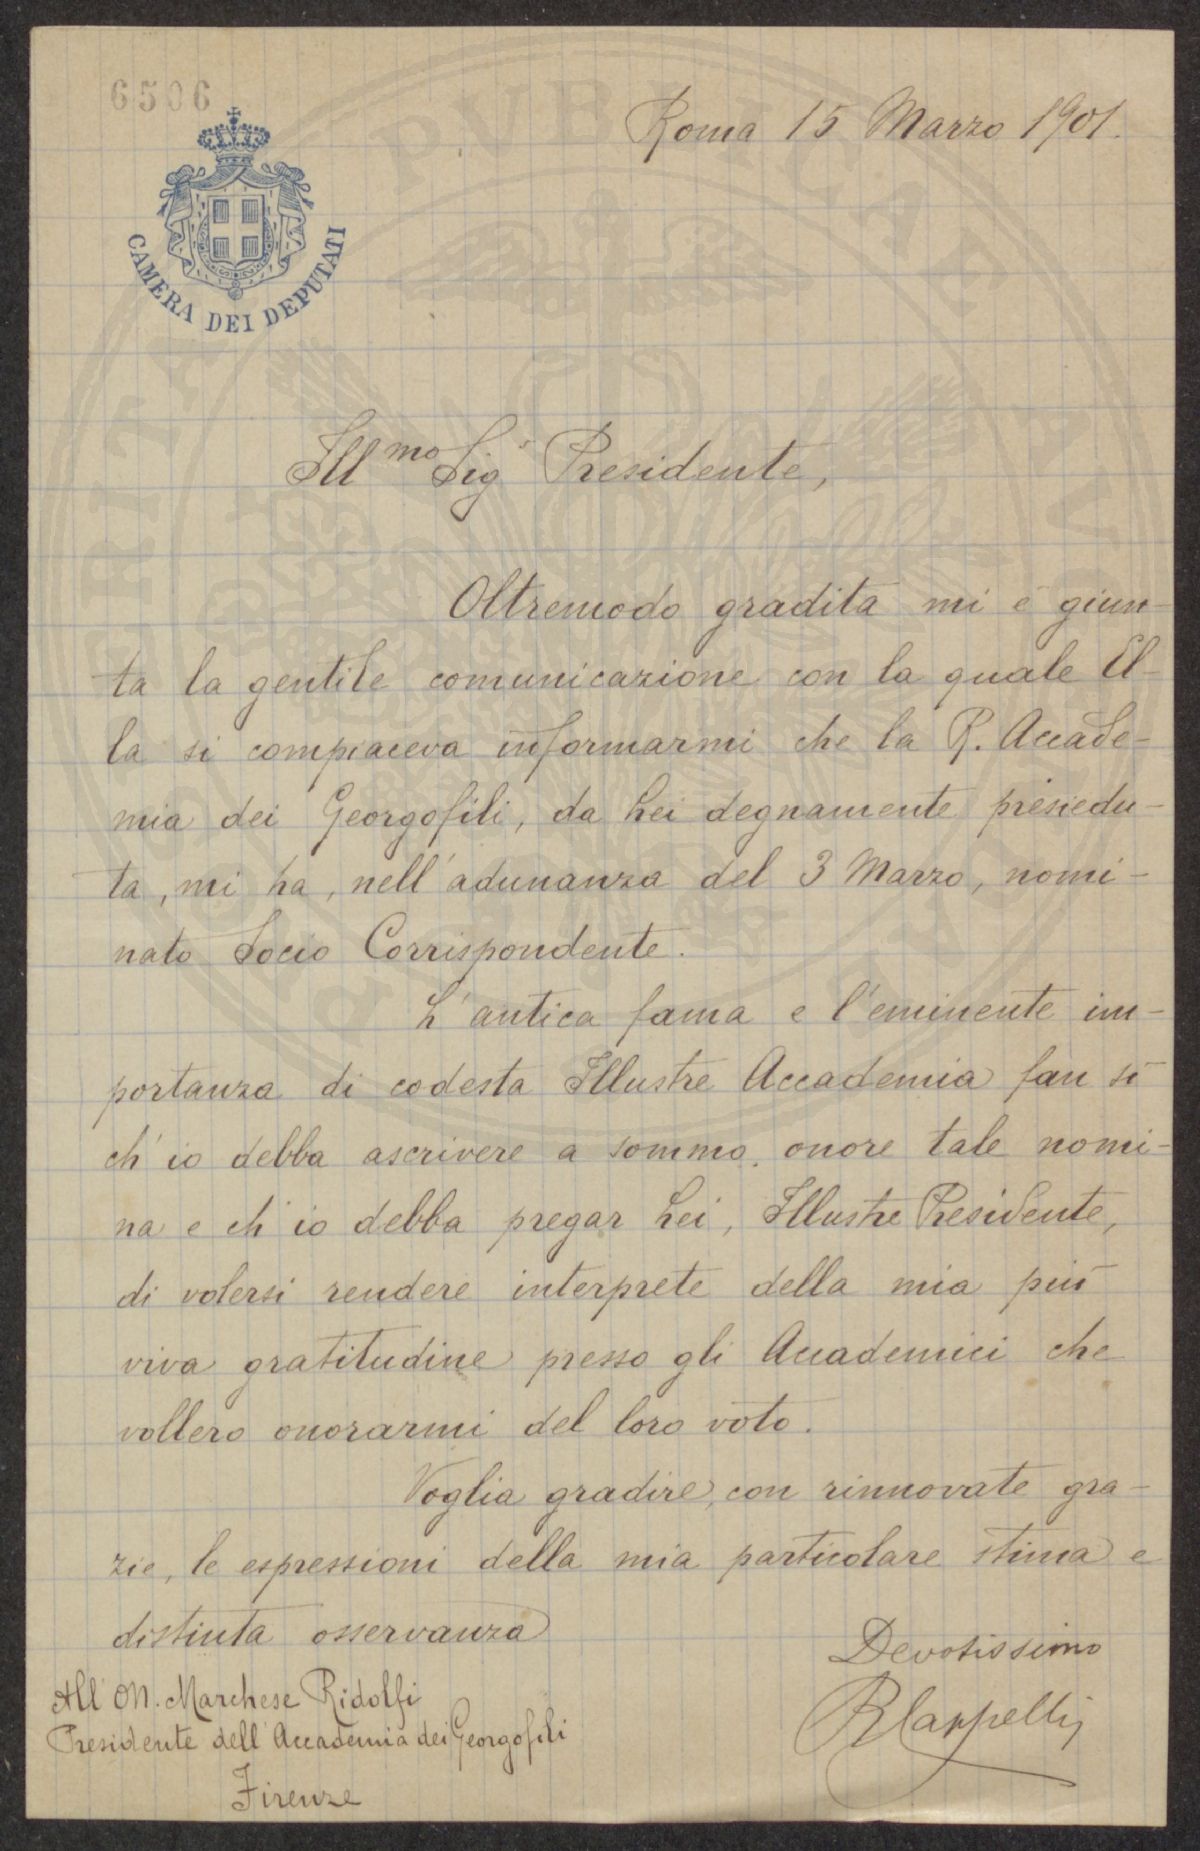 6506
CAMERA DEI DEPUTATI
Roma 15 Marzo 1901.
Ill.mo Sig.r Presidente,
Oltremodo gradita mi è giun-
ta la gentile comunicazione con la quale El-
la si compiaceva informarmi che la R. Accade-
mia dei Georgofili, da Lei degnamente presiedu-
ta, mi ha, nell'adunanza del 3 Marzo, nomi-
nato Socio Corrispondente.
L'antica fama e l'eminente im-
portanza di codesta Illustre Accademia fan sì
ch'io debba ascrivere a sommo onore tale nomi-
na e ch'io debba pregar Lei, Illustre Presidente,
di volersi rendere interprete della mia più
viva gratitudine presso gli Accademici che
vollero onorarmi del loro voto.
Voglia gradire, con rinnovate gra-
zie, le espressioni della mia particolare stima e
distinta osservanza
Devotissimo
RCappelli
All'On. Marchese Ridolfi
Presidente dell'Accademia dei Georgofili
Firenze